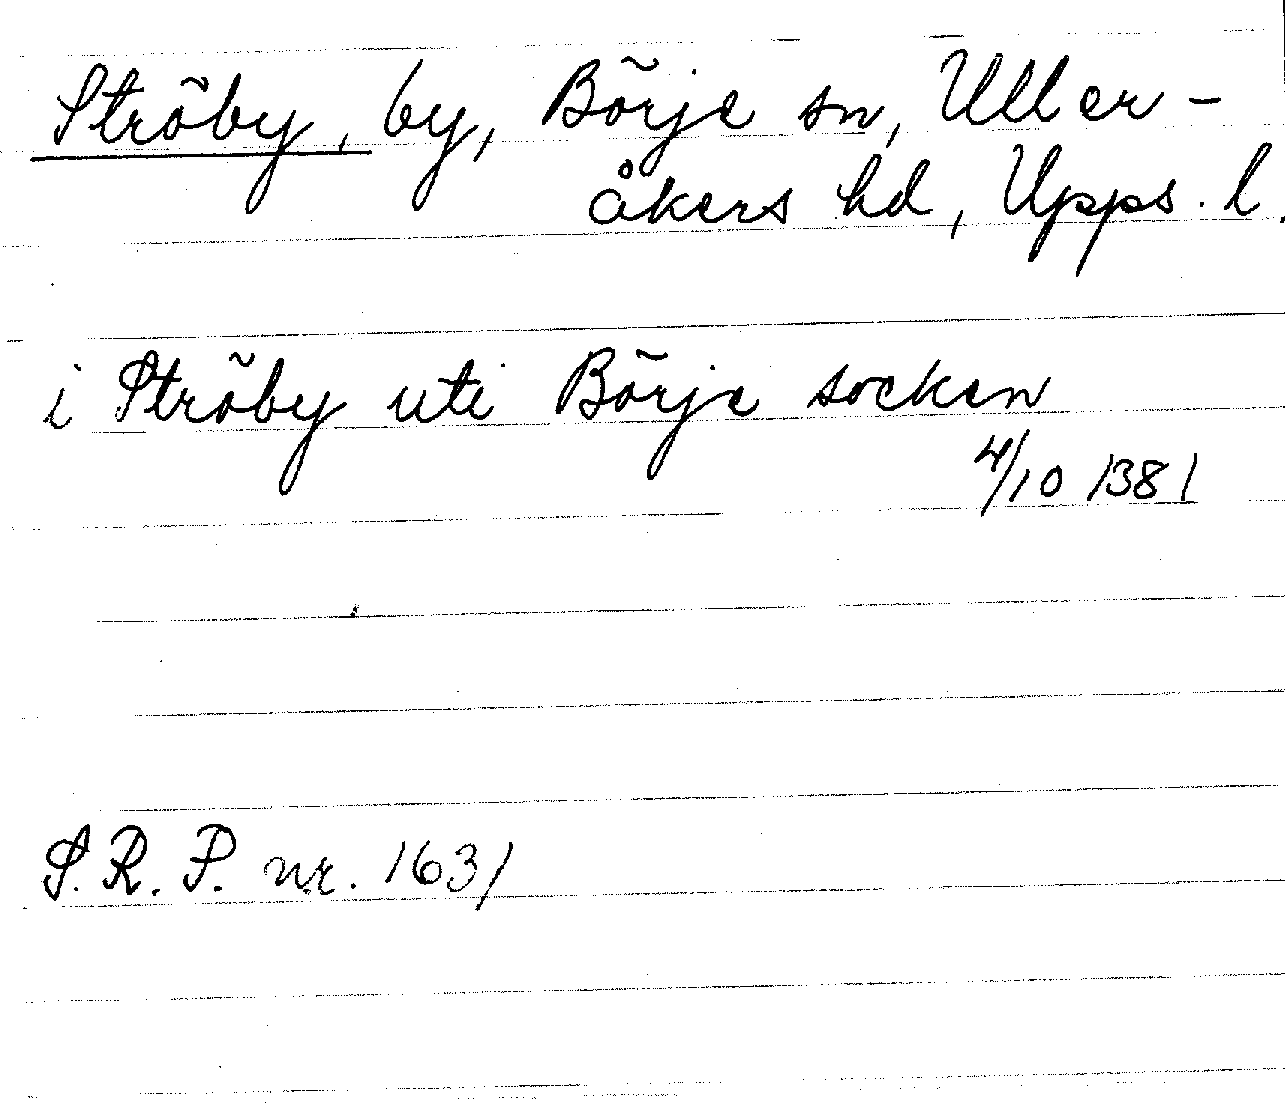 Ströby, by, Börje sn, Uller-
åkers hd, Upps. l.
i Ströby uti Börje socken
4/10 1381
S.R.P. nr. 1631